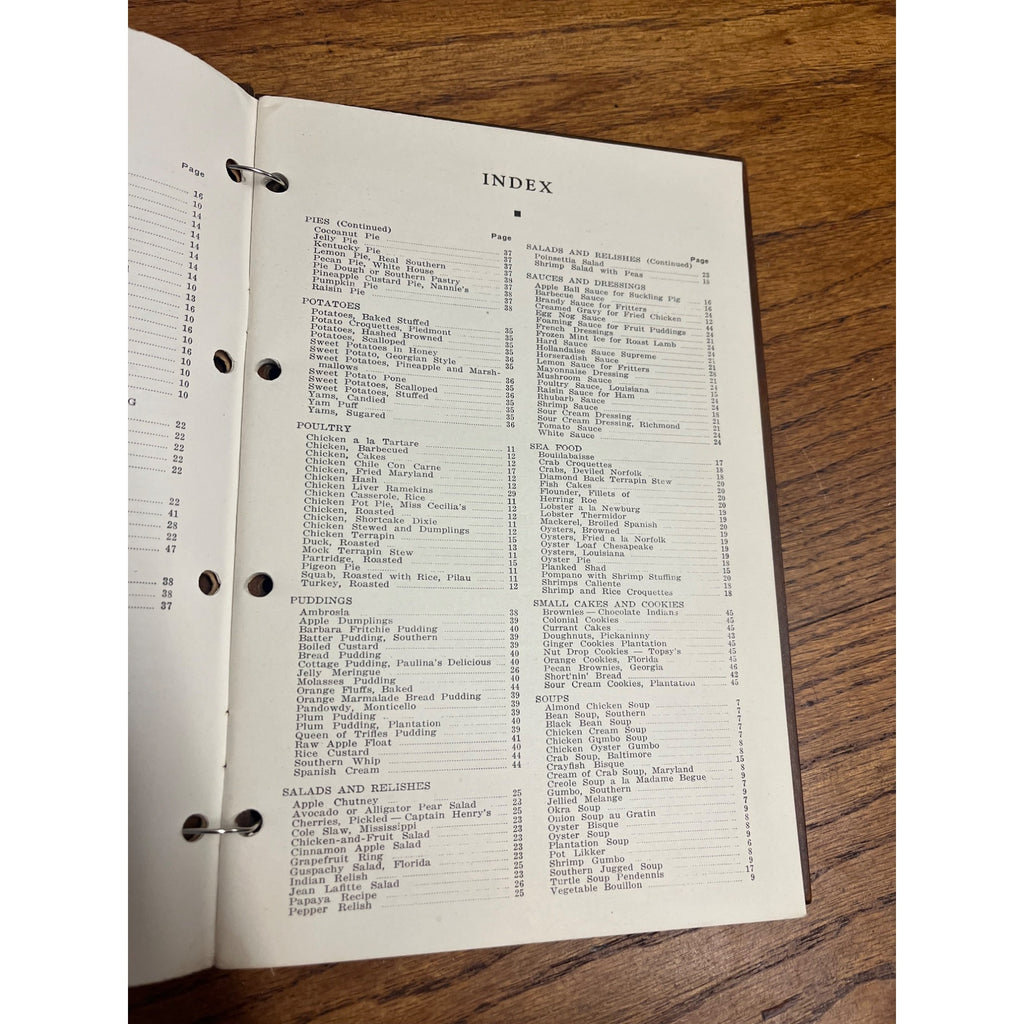 Page
16
10
14
14
14
14
14
14
10
13
16
10
16
16
10
10
10
G
22
22
22
22
22
41
28
22
47
38
38
37
INDEX
PIES (Continued)
Page
Cocoanut Pie
Jelly Pie
Kentucky Pie
Lemon Pie, Real Southern
Pecan Pie, White House
Pie Dough or Southern Pastry
Pineapple Custard Pie, Nannie's
Pumpkin Pie
Raisin Pie
POTATOES
Potatoes, Baked Stuffed
Potato Croquettes, Piedmont
Potatoes, Hashed Browned
Potatoes, Scalloped
Sweet Potatoes in Honey
Sweet Potato, Georgian Style
Sweet Potatoes, Pineapple and Marsh-
mallows
Sweet Potato Pone
Sweet Potatoes, Scalloped
Sweet Potatoes, Stuffed
Yams, Candied
Yam Puff
Yams, Sugared
POULTRY
Chicken a la Tartare 11
Chicken, Barbecued 12
Chicken, Cakes 12
Chicken Chile Con Carne 12
Chicken, Fried Maryland 17
Chicken Hash 12
Chicken Liver Ramekins 12
Chicken Casserole, Rice 29
Chicken Pot Pie, Miss Cecilia's 11
Chicken, Roasted 12
Chicken, Shortcake Dixie 11
Chicken Stewed and Dumplings 12
Chicken Terrapin 15
Duck, Roasted 13
Mock Terrapin Stew 11
Partridge, Roasted 15
Pigeon Pie 11
Squab, Roasted with Rice, Pilau 11
Turkey, Roasted 12
PUDDINGS
Ambrosia 38
Apple Dumplings 39
Barbara Fritchie Pudding 40
Batter Pudding, Southern 39
Boiled Custard 39
Bread Pudding 40
Cottage Pudding, Paulina's Delicious 40
Jelly Meringue 26
Molasses Pudding 40
Orange Fluffs, Baked 44
Orange Marmalade Bread Pudding 39
Pandowdy, Monticello 39
Plum Pudding 39
Plum Pudding, Plantation 40
Queen of Trifles Pudding 39
Raw Apple Float 41
Rice Custard 40
Southern Whip 44
Spanish Cream 44
SALADS AND RELISHES
Apple Chutney 25
Avocado or Alligator Pear Salad 23
Cherries, Pickled — Captain Henry's 25
Cole Slaw, Mississippi 23
Chicken-and-Fruit Salad 23
Cinnamon Apple Salad 23
Grapefruit Ring 23
Guspachy Salad, Florida 25
Indian Relish 23
Jean Lafitte Salad
Papaya Recipe 26
Pepper Relish 25
SALADS AND RELISHES (Continued)
Page
Poinsettia Salad 23
Shrimp Salad with Peas 18
SAUCES AND DRESSINGS
Apple Ball Sauce for Suckling Pig
Barbecue Sauce
Brandy Sauce for Fritters
Creamed Gravy for Fried Chicken
Egg Nog Sauce
Foaming Sauce for Fruit Puddings
French Dressings
Frozen Mint Ice for Roast Lamb
Hard Sauce
Hollandaise Sauce Supreme
Horseradish Sauce
Lemon Sauce for Fritters
Mayonnaise Dressing
Mushroom Sauce
Poultry Sauce, Louisiana
Raisin Sauce for Ham
Rhubarb Sauce
Shrimp Sauce
Sour Cream Dressing
Sour Cream Dressing, Richmond
Tomato Sauce
White Sauce
SEA FOOD
Bouillabaisse 17
Crab Croquettes 18
Crabs, Deviled Norfolk 18
Diamond Back Terrapin Stew
Fish Cakes
Flounder, Fillets of
Herring Roe
Lobster a la Newburg
Lobster Thermidor
Mackerel, Broiled Spanish
Oysters, Browned
Oysters, Fried a la Norfolk
Oyster Loaf Chesapeake
Oysters, Louisiana
Oyster Pie
Planked Shad
Pompano with Shrimp Stuffing
Shrimps Caliente
Shrimp and Rice Croquettes 18
SMALL CAKES AND COOKIES
Brownies — Chocolate Indians 45
Colonial Cookies 45
Currant Cakes 45
Doughnuts, Pickaninny 43
Ginger Cookies Plantation 45
Nut Drop Cookies — Topsy's 45
Orange Cookies, Florida 45
Pecan Brownies, Georgia 46
Short'nin' Bread 42
Sour Cream Cookies, Plantation 45
SOUPS
Almond Chicken Soup 7
Bean Soup, Southern 7
Black Bean Soup 7
Chicken Cream Soup 7
Chicken Gumbo Soup 7
Chicken Oyster Gumbo 8
Crab Soup, Baltimore 8
Crayfish Bisque 15
Cream of Crab Soup, Maryland 8
Creole Soup a la Madame Begue 9
Gumbo, Southern 7
Jellied Melange 9
Okra Soup 7
Onion Soup au Gratin 8
Oyster Bisque 9
Oyster Soup 8
Plantation Soup 9
Pot Likker 6
Shrimp Gumbo 8
Southern Jugged Soup 9
Turtle Soup Pendennis 17
Vegetable Bouillon 9